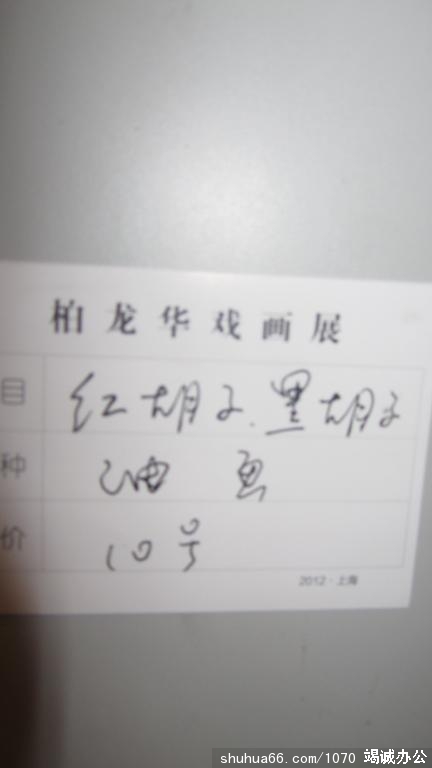 柏龙华戏画展
目 红胡子.黑胡子
种 油画
价 10号
2012·上海
shuhua66.com/1070 竭诚办公